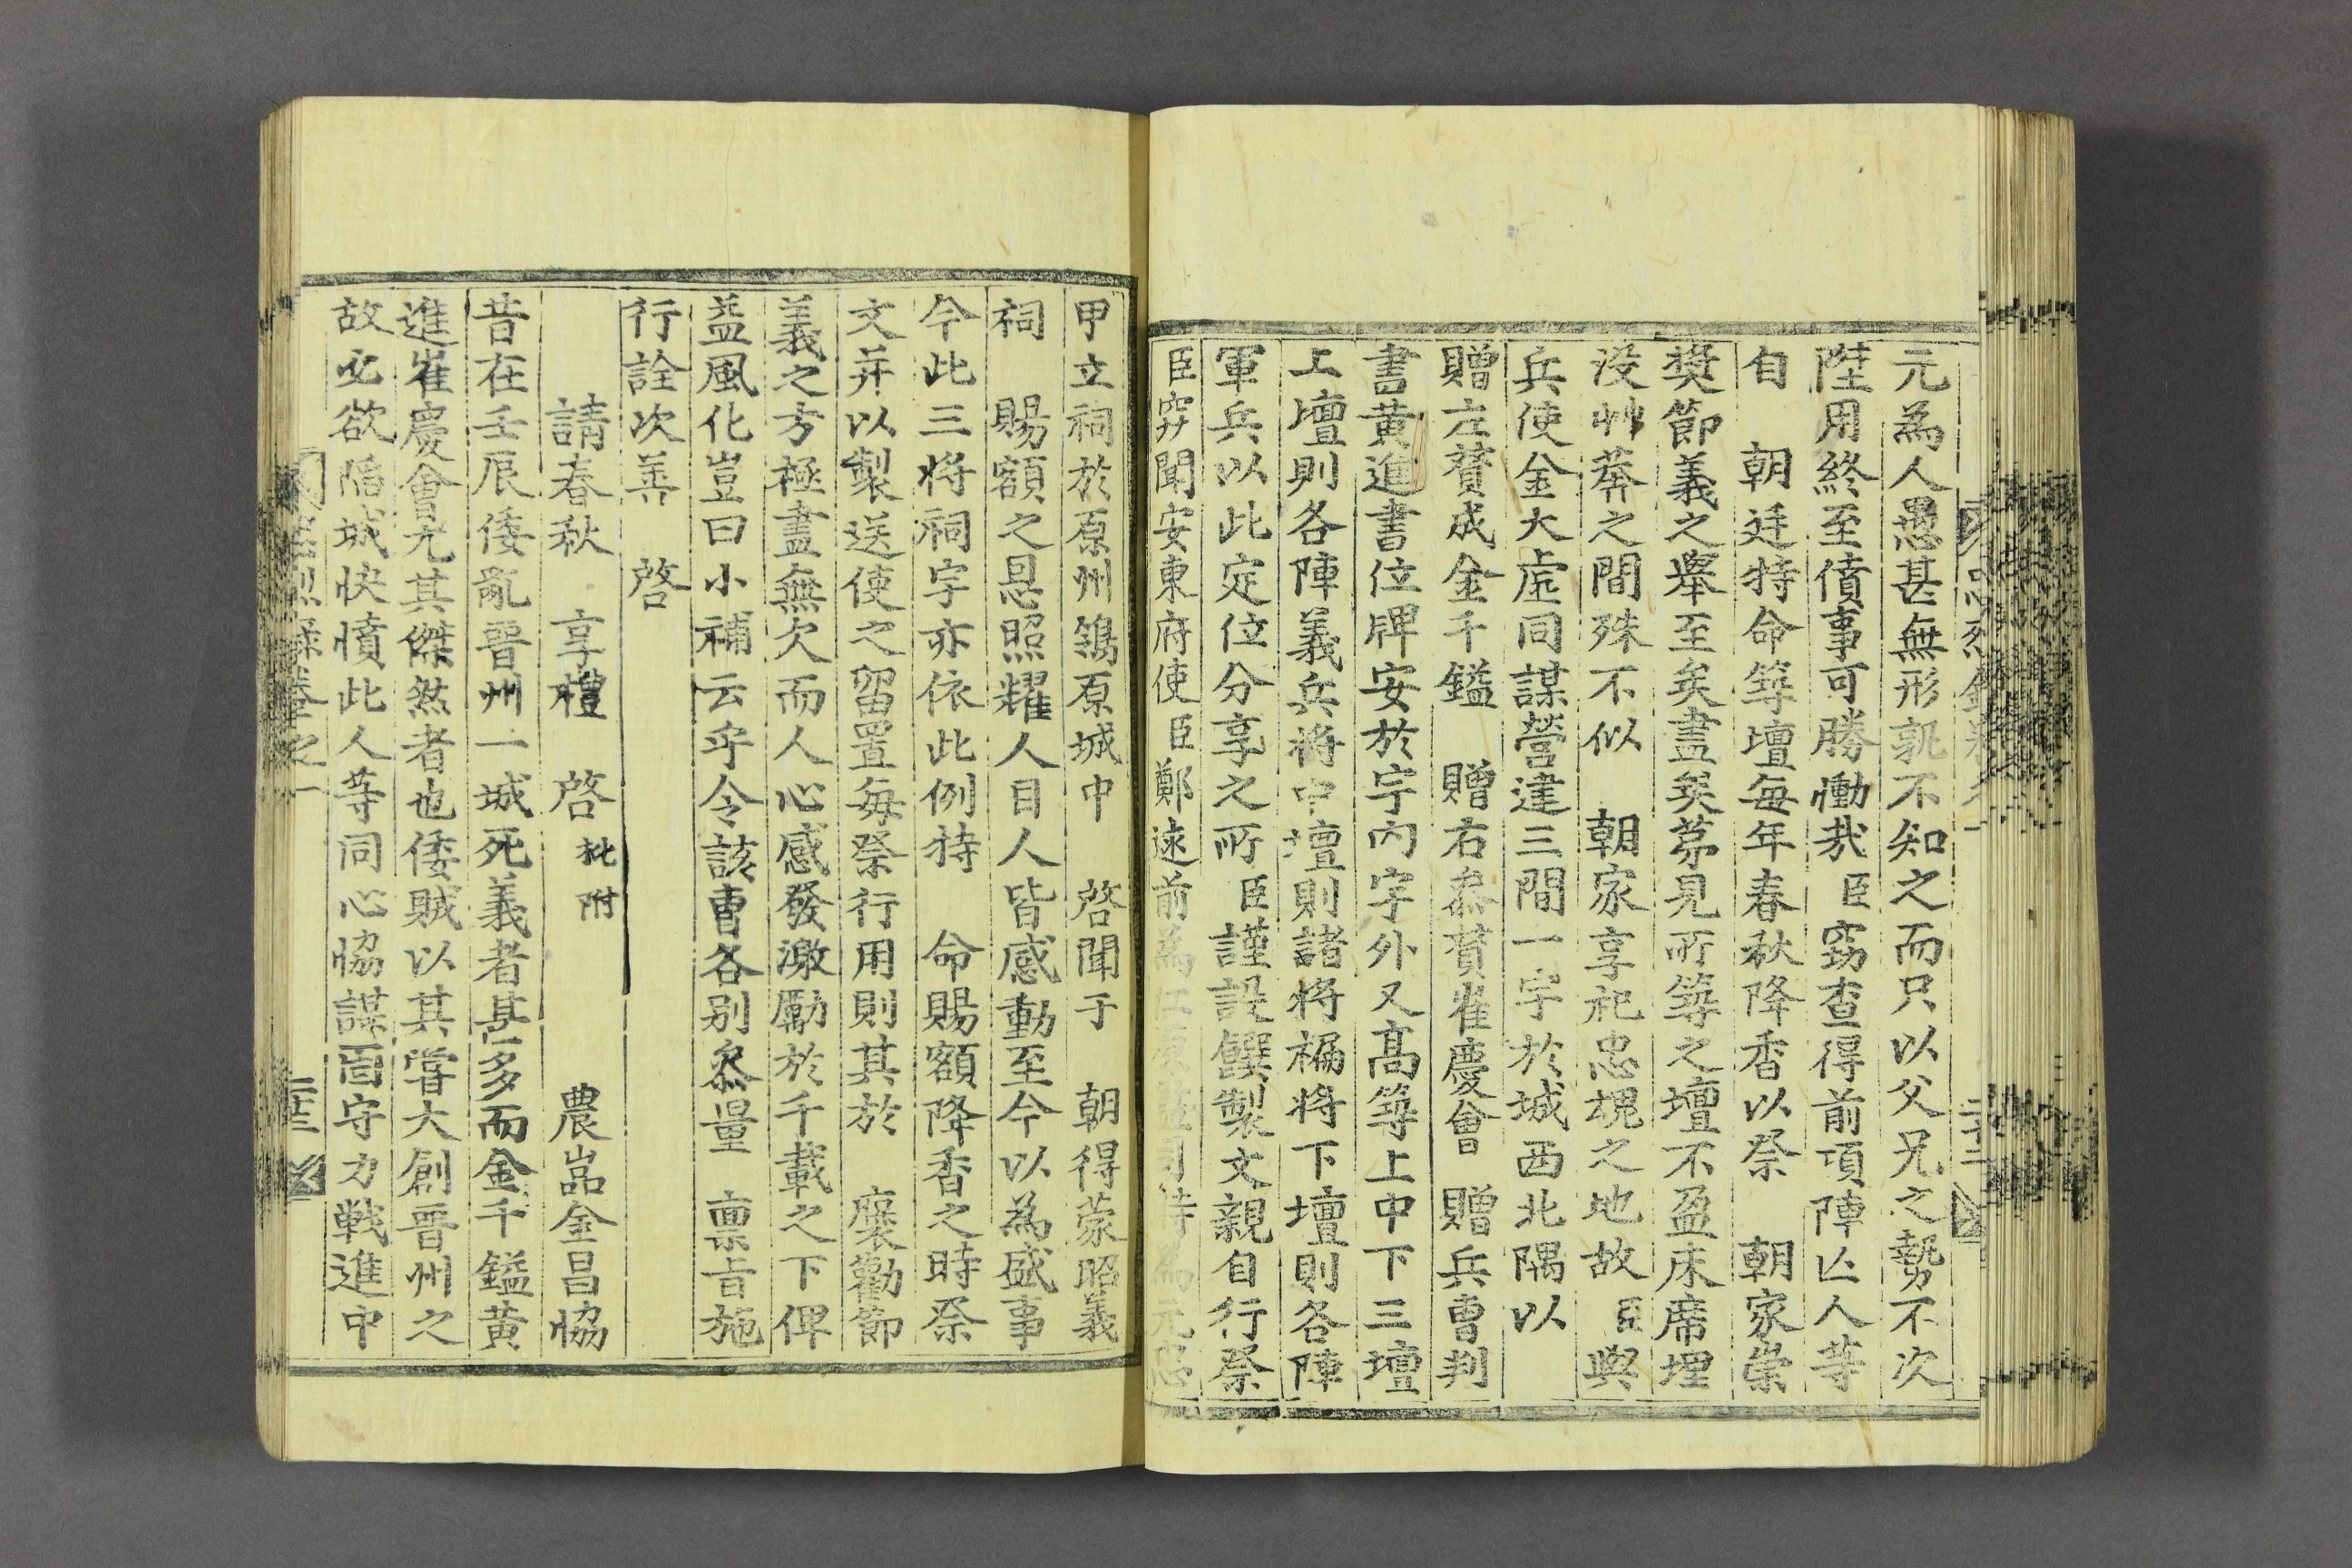 元為人愚甚無形孰不知之而只以父兄之勢不次
陞用終至僨事可勝慟哉臣窃查得前項陣亾人等
自 朝廷特命築壇每年春秋降香以祭 朝家崇
奬節義之擧至矣盡矣苐見所築之壇不盈床席埋
没艸莽之間殊不似 朝家享祀忠槐之地故臣與
兵使金大虛同謀營建三間一宇於城西北隅以
贈左賛成金千鎰 贈右叅賛崔慶會 贈兵曹判
書黄進書位牌安於宇内宇外又高築上中下三壇
上壇則各陣義兵将中壇則諸将褊将下壇則各陣
軍兵以此定位分享之所臣謹設饌製文親自行祭
臣穽聞安東府使臣鄭逑前為江原監司時為元忠
甲立祠於原州鴒原城中 啓聞于 朝得蒙昭義
祠 賜額之恩照耀人目人皆感動至今以為盛事
今此三将祠宇亦依此例特 命賜額降香之時祭
文并以製送使之留置每祭行用則其於 襃勸節
義之方極盡無欠而人心感發激勵於千載之下俾
益風化豈曰小補云乎令該曹各别叅量 禀旨施
行詮次善 啓
請春秋 享禮 啓 批附 農嵓金昌協
昔在壬辰倭亂晋州一城死義者甚多而金千鎰黄
進崔慶會尤其傑然者也倭賊以其嘗大創晋州之
故必欲陷城快憤此人等同心恊謀固守力戦進中